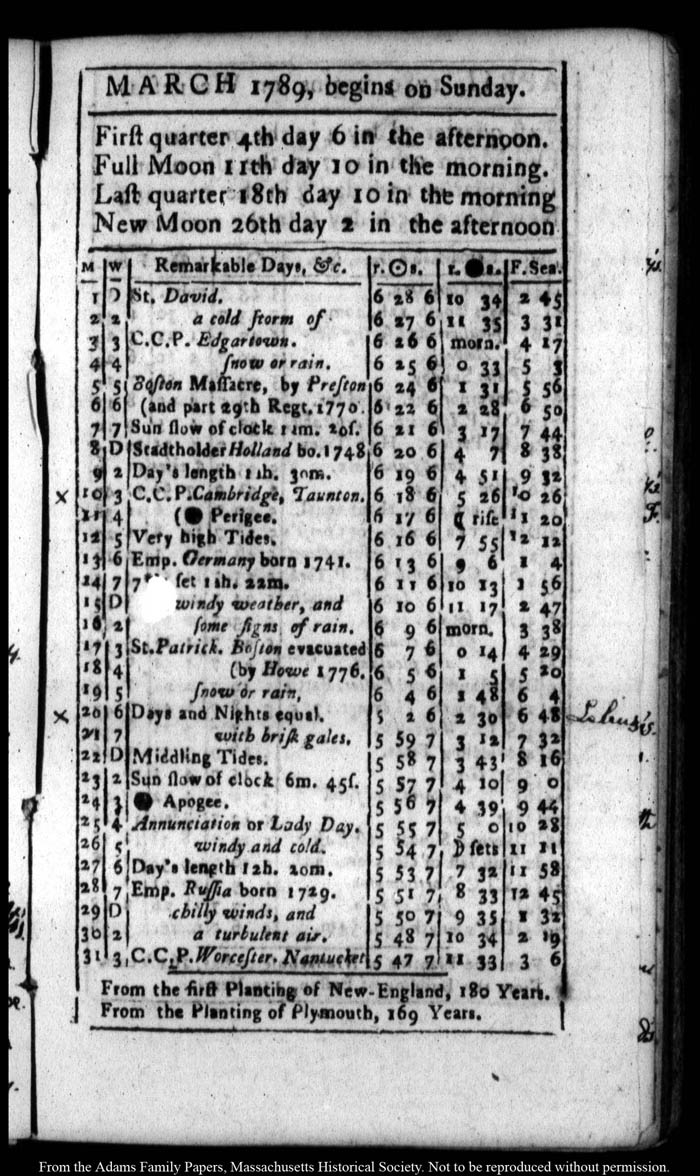 MARCH 1789, begins on Sunday.
Firſt quarter 4th day 6 in the afternoon.
Full Moon 11th day 10 in the morning.
Laſt quarter 18th day 10 in the morning
New Moon 26th day 2 in the afternoon
M W Remarkable Days, &c. r. ☉ s. r. ● s. F. Sea.
1 D St. David. 6 28 6 10 34 2 45
2 2 a cold ſtorm of 6 27 6 11 35 3 31
3 3 C.C.P. Edgartown. 6 26 6 morn. 4 17
4 4 ſnow or rain. 6 25 6 0 33 5 3
5 5 Boſton Maſſacre, by Preſton 6 24 6 1 31 5 56
6 6 (and part 29th Regt. 1770. 6 22 6 2 28 6 50
7 7 Sun ſlow of clock 11m. 20ſ. 6 21 6 3 17 7 44
8 D Stadtholder Holland bo. 1748 6 20 6 4 7 8 38
9 2 Day's length 11h. 30m. 6 19 6 4 51 9 32
x 10 3 C.C.P. Cambridge, Taunton. 6 18 6 5 26 10 26
11 4 (● Perigee. 6 17 6 riſe 11 20
12 5 Very high Tides. 6 16 6 7 55 12 12
13 6 Emp. Germany born 1741. 6 13 6 9 6 1 4
14 7 ſet 11h. 22m. 6 11 6 10 13 1 56
15 D windy weather, and 6 10 6 11 17 2 47
16 2 ſome ſigns of rain. 6 9 6 morn. 3 38
17 3 St. Patrick. Boſton evacuated 6 7 6 0 14 4 29
18 4 (by Howe 1776. 6 5 6 1 5 5 20
19 5 ſnow or rain, 6 4 6 1 48 6 4
x 20 6 Days and Nights equal. 5 2 6 2 30 6 48
21 7 with briſk gales. 5 59 7 3 12 7 32
22 D Middling Tides. 5 58 7 3 43 8 16
23 2 Sun ſlow of clock 6m. 45ſ. 5 57 7 4 10 9 0
24 3 ● Apogee. 5 56 7 4 39 9 44
25 4 Annunciation or Lady Day. 5 55 7 5 0 10 28
26 5 windy and cold. 5 54 7 D ſets 11 11
27 6 Day's length 12h. 20m. 5 53 7 7 32 11 58
28 7 Emp. Ruſſia born 1729. 5 51 7 8 33 12 45
29 D chilly winds, and 5 50 7 9 35 1 32
30 2 a turbulent air. 5 48 7 10 34 2 19
31 3 C.C.P. Worceſter. Nantucket 5 47 7 11 33 3 6
From the firſt Planting of New-England, 180 Years.
From the Planting of Plymouth, 169 Years.
From the Adams Family Papers, Massachusetts Historical Society. Not to be reproduced without permission.